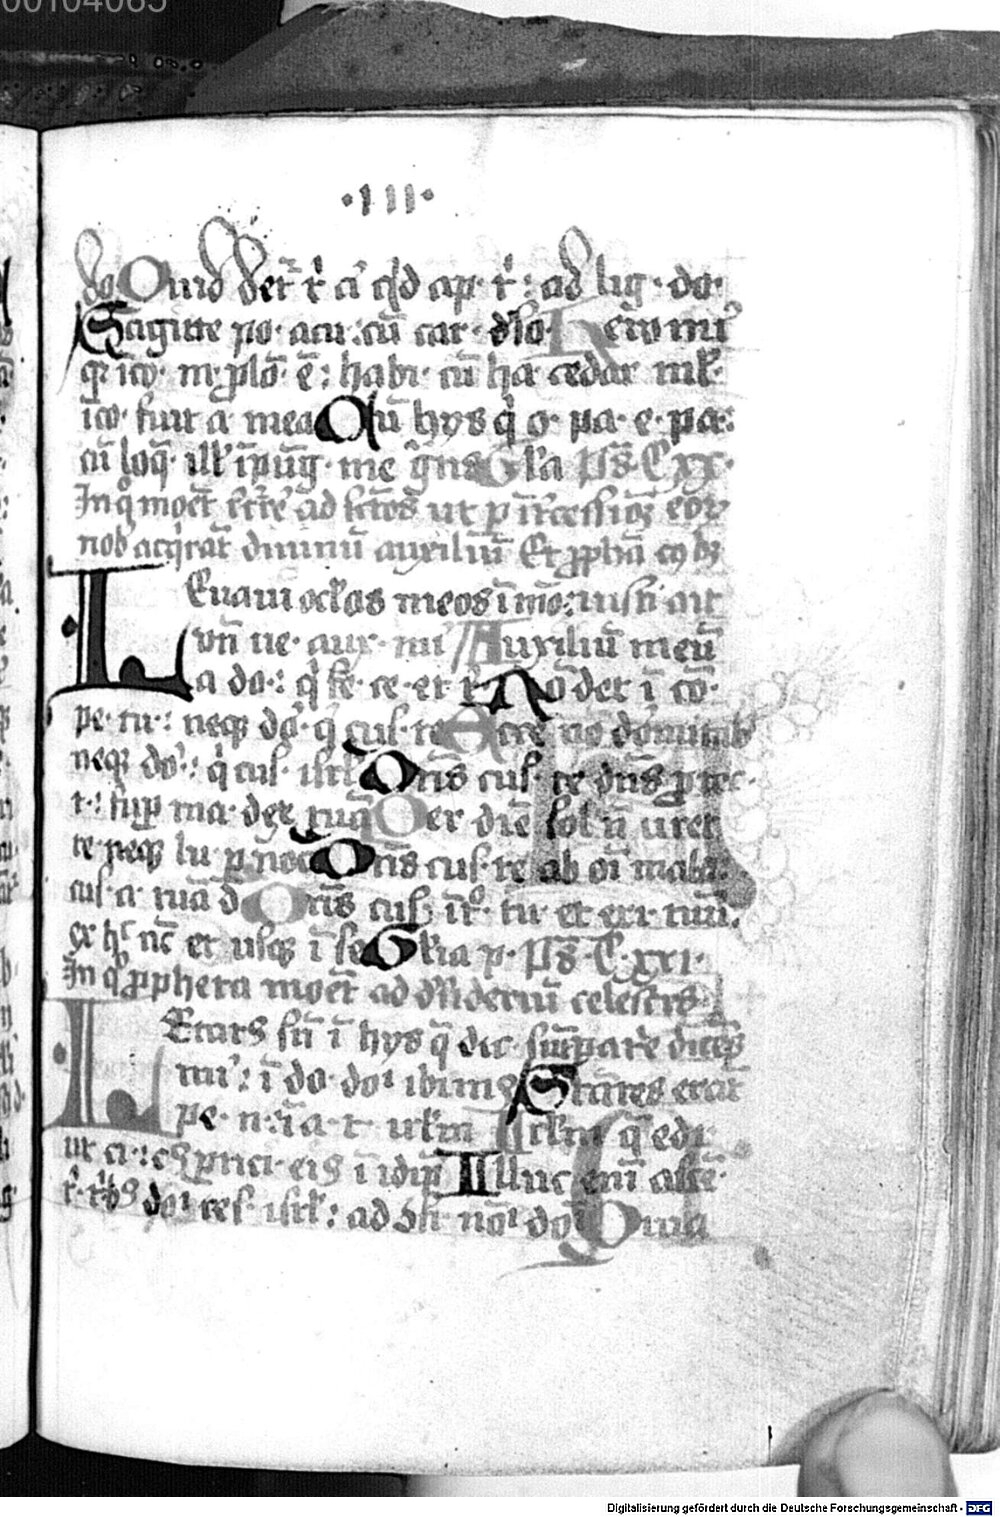 00104065
·III·
do Quid det̄ t̓ a̓ qd ap· t̓: ad lig· do·
Sagitte po· acu: cū car· dſo· Heu mi
q̄ īco· m̄ plō· ē: habi· cū ha· cedar ml̄·
īco· fuit a· mea Cū hys q̓ o· pa· e· pa:
cū loq̄· ill̓ īpūg· me g̓ns Gl̓a ps̄· Cxx·
In q̓ moet̄ ad sc̄tos ut p
nob̓ acq̓rat̄ diuinū auxiliū Et
Leuaui oc̓los meos ī mō: un̄
vn̄ ue· aux· mi Auxiliū meū
a do·: q̓ fe· ce· et t̓· Nō det ī cō·
pe· tu·: neq; do̓· q̓ cus· te Ecce nō dormitab̓
neq; do̓·: q̓ cus· isrl̓ Dn̄s cus· te dn̄s prec·
t·: sup̄ ma· dex· tuā Per diē sol n̄ uret
te neq; lu· p noc Dn̄s cus· te ab oī malo:
cus· a· tuā d̄ Dn̄s cus· īt̓o· tu· et exi· tuū·
ex h̓ nc̄ et usq; ī se Gl̓ia p· ps̄· C·xxi·
In q̓ ppheta moet̄ ad desideriū celestis
Letatus sū ī hys q̄ dic·
mi̓: ī do· do̓ ibimus Stātes erāt
pe· n̄: ī a· t· irl̄m Irl̄m q̄ edi·
ut ci·: c̓ ptici· eis ī idip̄ Illuc eni̓ ascē·
t̓· t̓bus do̓ tes· isrl̓: ad ɔfi· nō̓ do̓ Quia
Digitalisierung gefördert durch die Deutsche Forschungsgemeinschaft - DFG